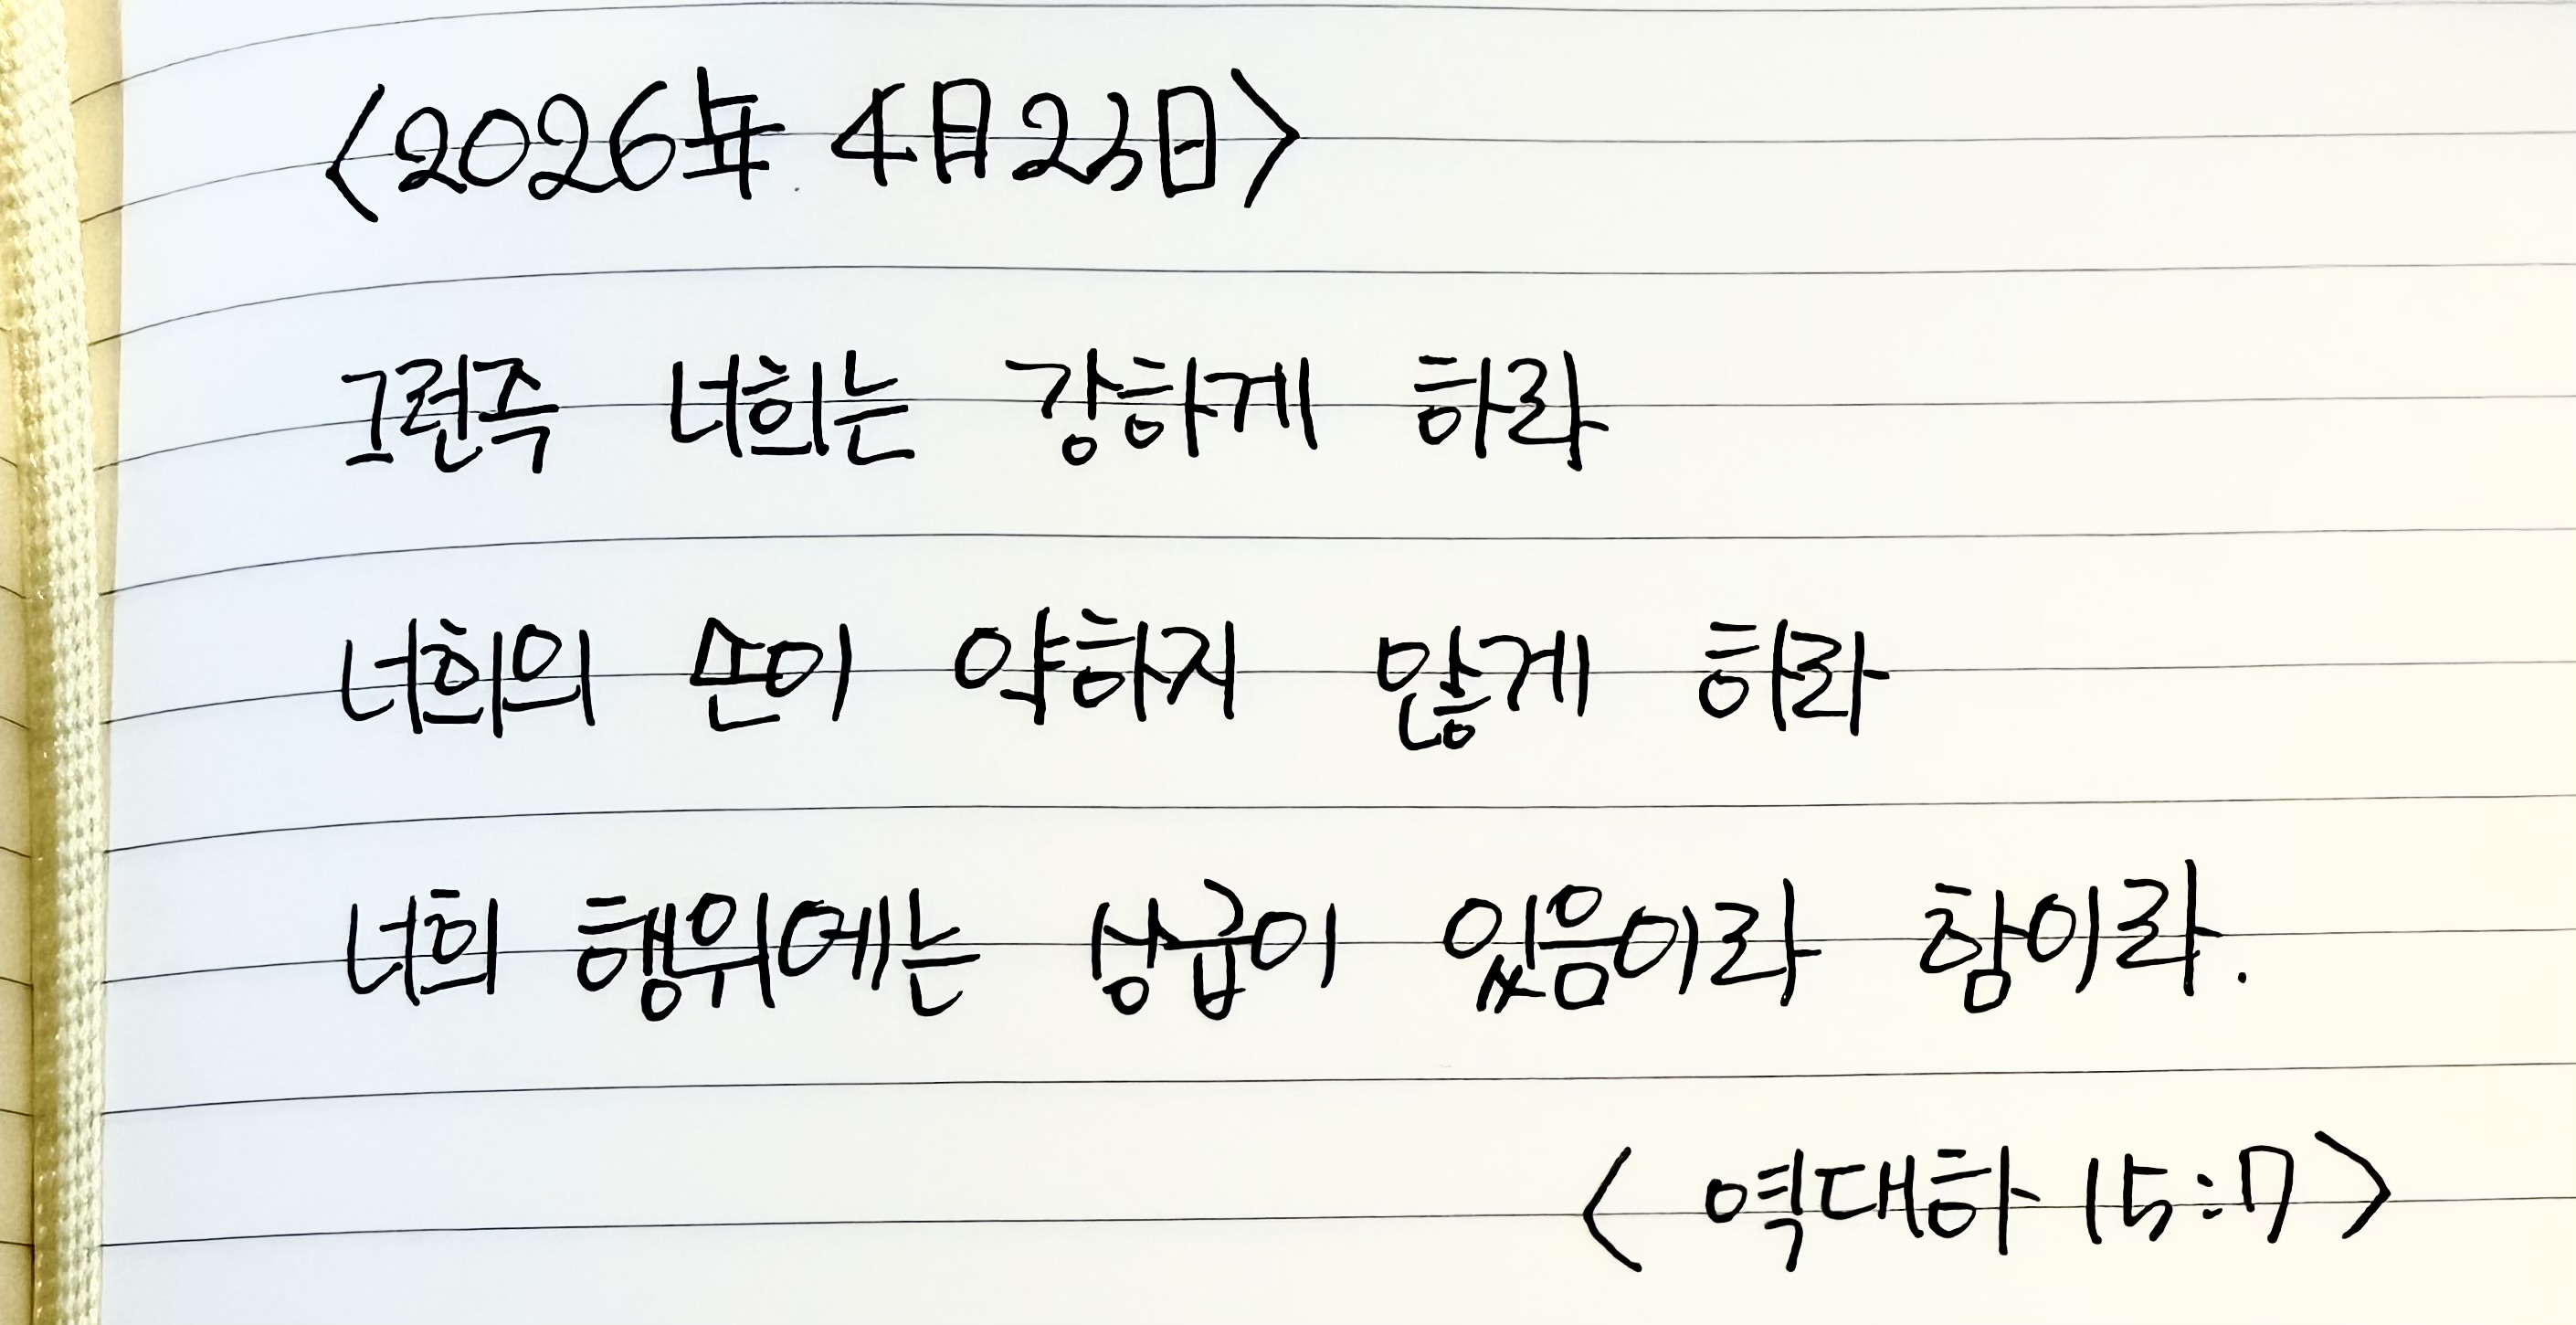 <2026年 4月23日>
그런즉 너희는 강하게 하라
너희의 손이 약하지 않게 하라
너희 행위에는 상급이 있음이라 함이라.
< 역대하 15:7 >